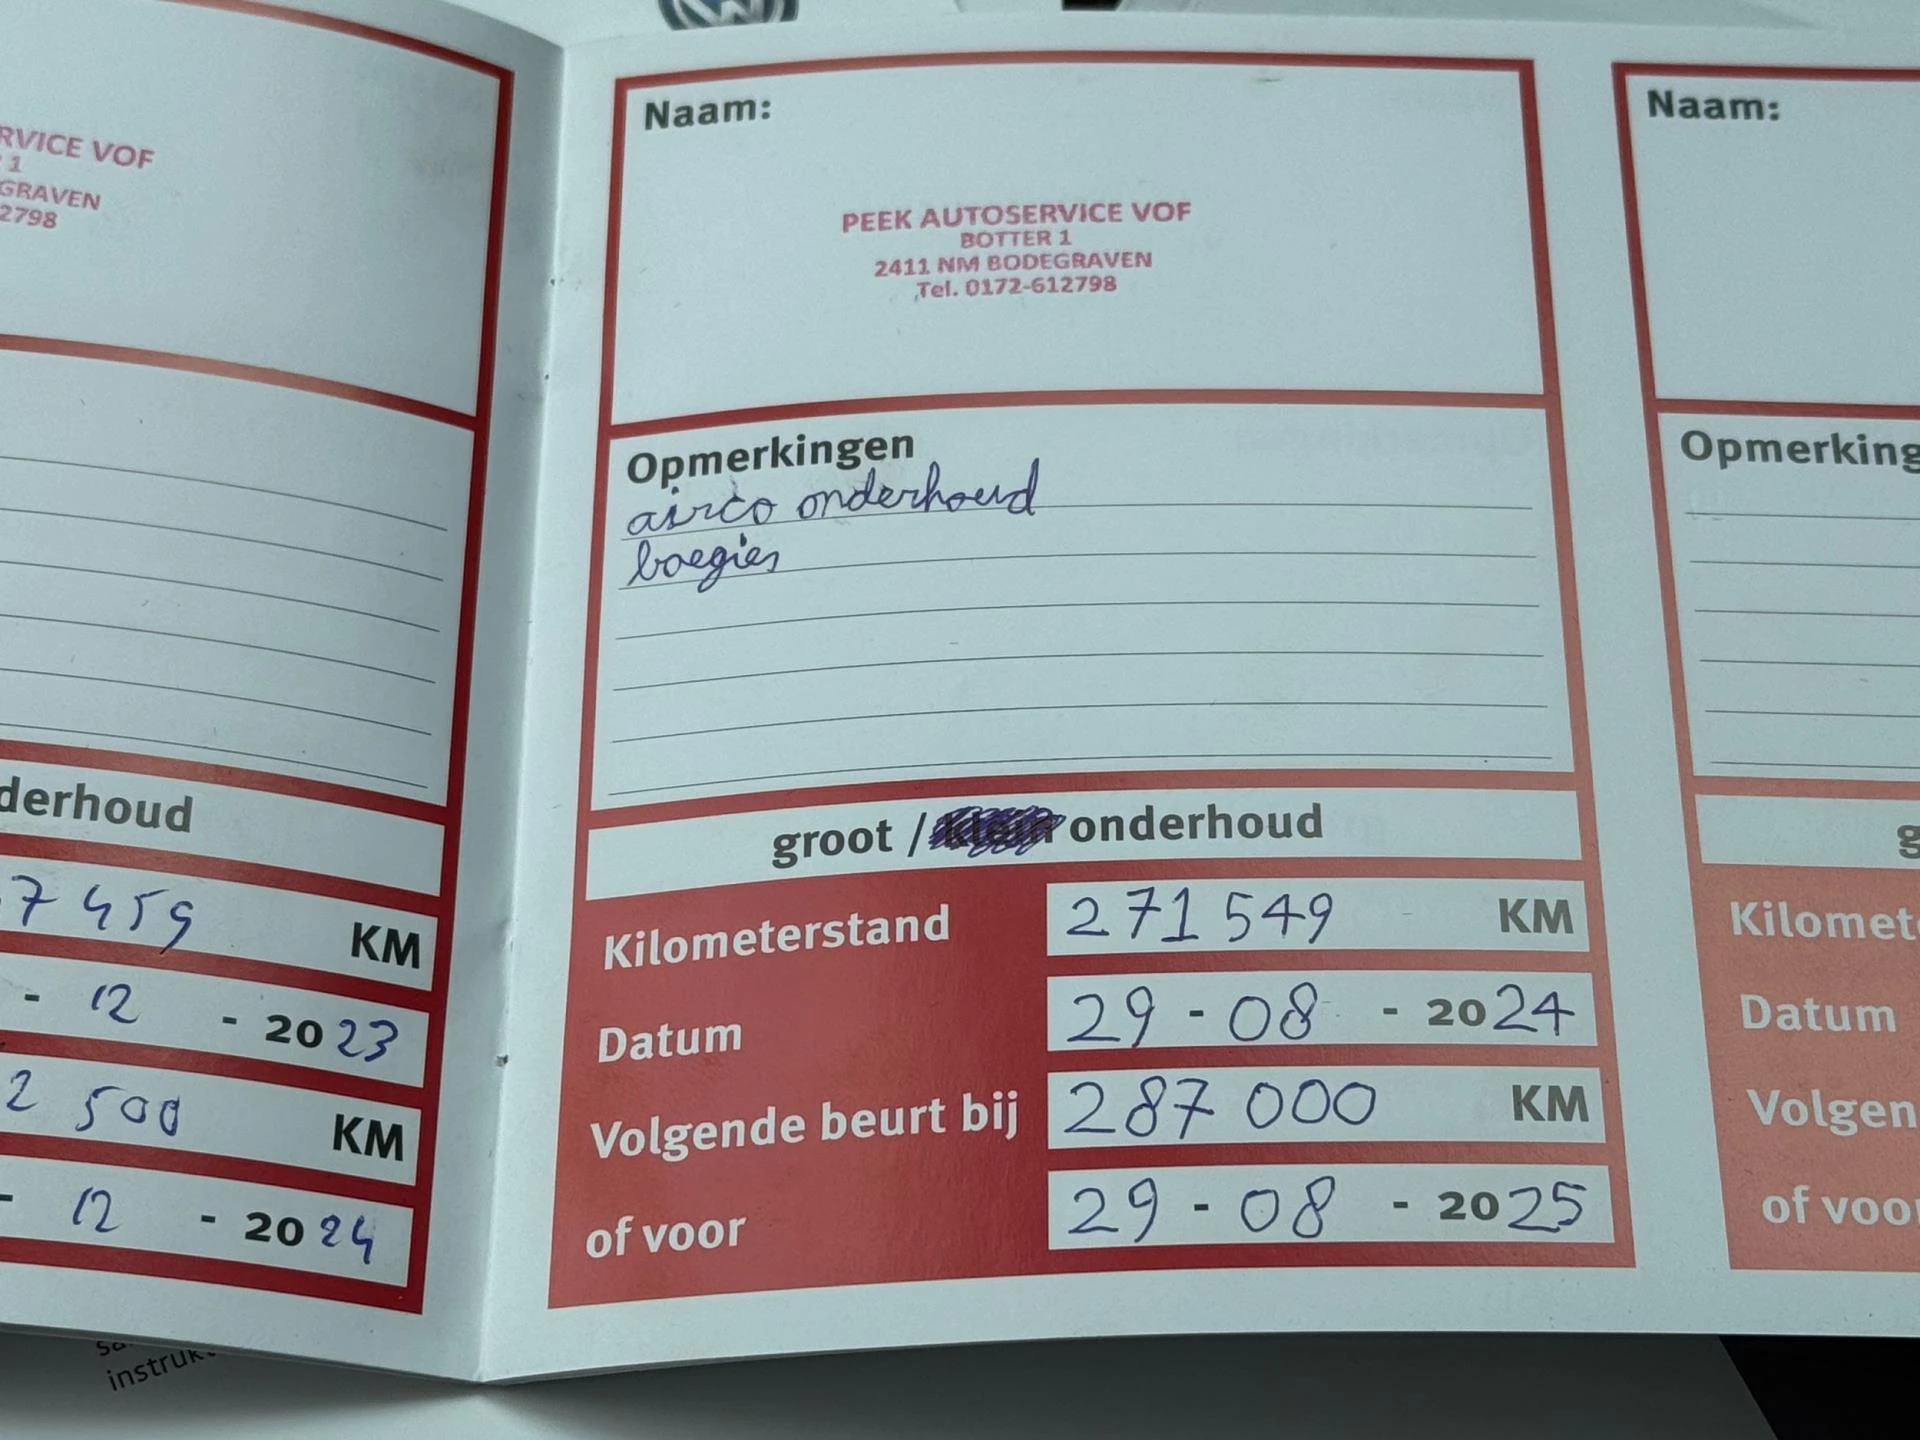 RVICE VOF
1
GRAVEN
2798
derhoud
7 459 KM
- 12 - 2023
2 500 KM
- 12 - 2024
instruk
Naam:
PEEK AUTOSERVICE VOF
BOTTER 1
2411 NM BODEGRAVEN
Tel. 0172-612798
Opmerkingen
airco onderhoud
boegies
groot / klein onderhoud
Kilometerstand 271 549 KM
Datum 29 - 08 - 2024
Volgende beurt bij 287 000 KM
of voor 29 - 08 - 2025
Naam:
Opmerking
g
Kilomet
Datum
Volgen
of voo